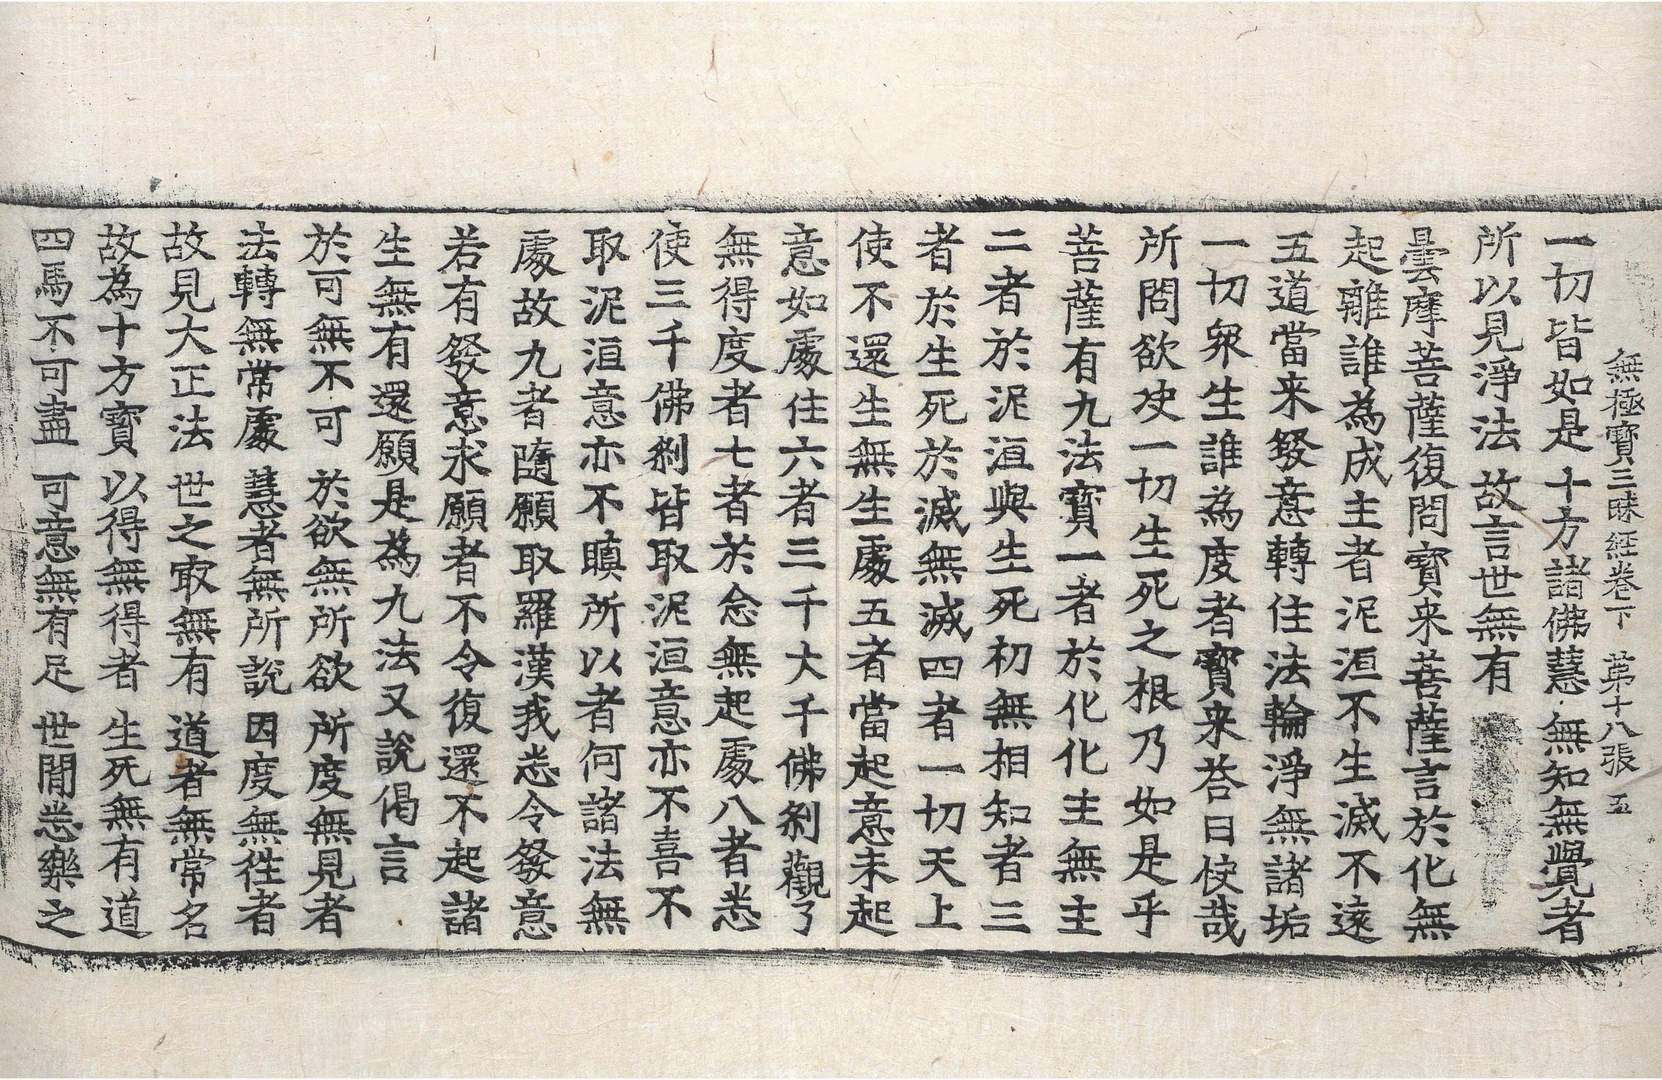 無極寶三昧經卷下　第十八張　五
一切皆如是　十方諸佛慧　無知無覺者
所以見淨法　故言世無有
曇摩菩薩復問寶来菩薩言於化無
起離誰為成主者泥洹不生滅不遠
五道當来發意轉住法輪淨無諸垢
一切衆生誰為度者寶来荅曰快哉
所問欲決一切生死之根乃如是乎
菩薩有九法寶一者於化化主無主
二者於泥洹與生死初無相知者三
者於生死於滅無滅四者一切天上
使不還生無生處五者當起意未起
意如處住六者三千大千佛刹觀了
無得度者七者於念無起處八者悉
使三千佛刹皆取泥洹意亦不喜不
取泥洹意亦不瞋所以者何諸法無
處故九者隨願取羅漢我悉令發意
若有發意求願者不令復還不起諸
生無有還願是為九法又說偈言
於可無不可　於欲無所欲　所度無見者
法轉無常處　慧者無所說　因度無徃者
故見大正法　世之㝡無有　道者無常名
故為十方寶　以得無得者　生死無有道
四馬不可盡　可意無有足　世間悉樂之